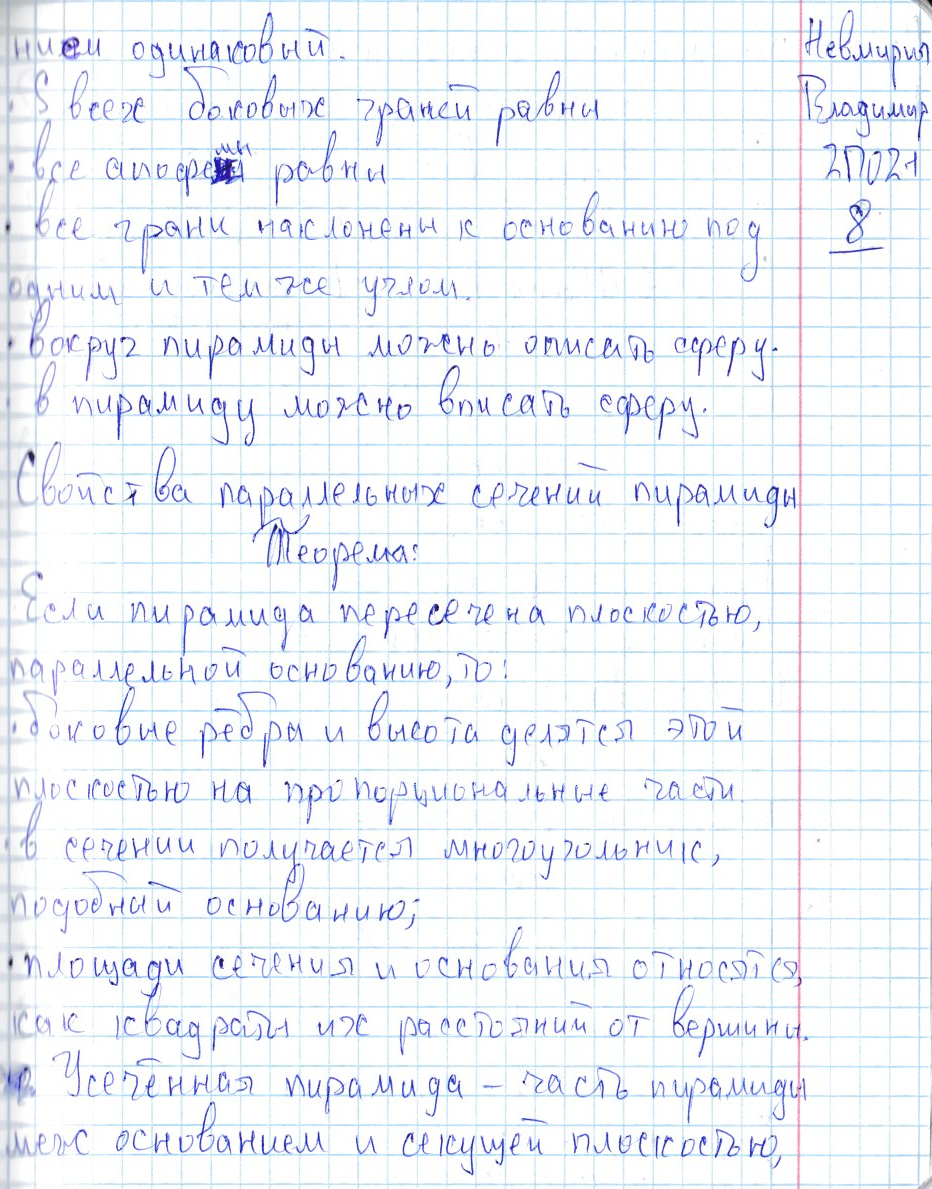 нием одинаковый.
• S всех боковых граней равны
• все апофемы равны
• все грани наклонены к основанию под
одним и тем же углом.
• вокруг пирамиды можно описать сферу.
• в пирамиду можно вписать сферу.
Свойства параллельных сечений пирамиды
Теорема:
Если пирамида пересечена плоскостью,
параллельной основанию, то:
• боковые рёбры и высота делятся этой
плоскостью на пропорциональные части.
• в сечении получается многоугольник,
подобный основанию;
• площади сечения и основания относятся,
как квадраты их расстояний от вершины.
Усечённая пирамида – часть пирамиды
меж основанием и секущей плоскостью,
Невмирич
Владимир
2П021
8